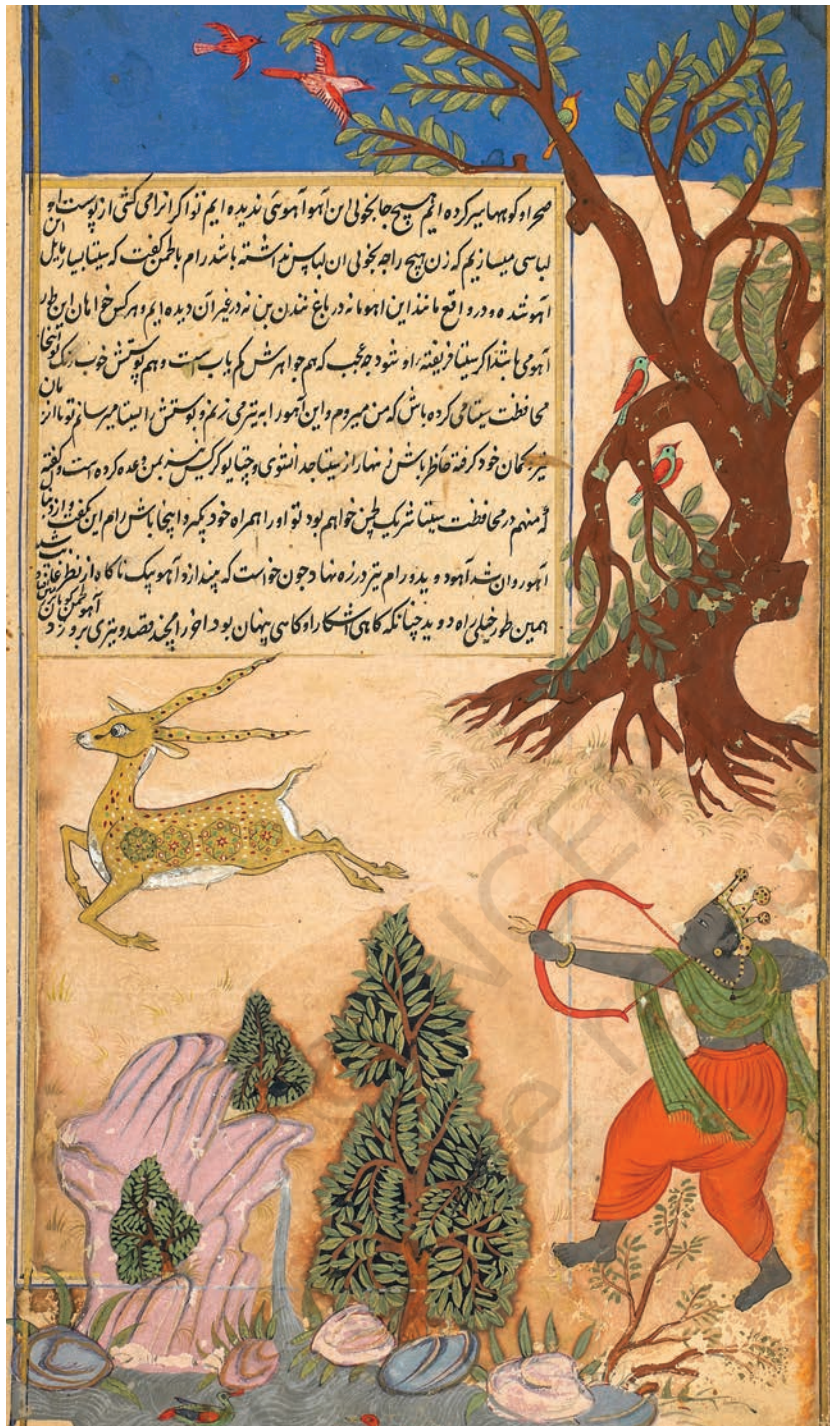 صحرا و کوهها سیر کرده ایم هیچ جا بخوبی این آهو آهوئی ندیده ایم تو اگر انرا می کشی از پوست این
لباسی میسازیم که زن هیچ راجه بخوبی ان لباس نداشته باشد رام بالچمن گفت که سیتا بسیار مایل
آهو شده و در واقع مانند این اهو ما نه در باغ نندن بن نه در غیر آن دیده ایم و هر کس خواهان این طور
آهو می باشد اگر سیتا فریفته او شود چه عجب که هم جواهرش کم یاب است و هم پوستش خوب رنگ تو اینجا
محافظت سیتا می کرده باش که من میروم و این آهو را به تیر می زنم و پوستش را بسیتا میرسانم تو
تیر و کمان خود گرفته حاضر باش زنهار از سیتا جدا نشوی و جتایو کرگس نیز بمن وعده کرده است و گفته
که منهم در محافظت سیتا شریک لچمن خواهم بود تو او را همراه خود بگیر و اینجا باش رام این بگفت و
آهو روان شد آهو دوید و رام تیر در زه نهاد چون خواست که بیندازد آهو یک ناگاه از نظر غائب شد
همین طور خیلی راه دوید چنانکه گاهی آشکارا و گاهی پنهان بود اخر رامچند قصد و تیری برو زد
NCERT